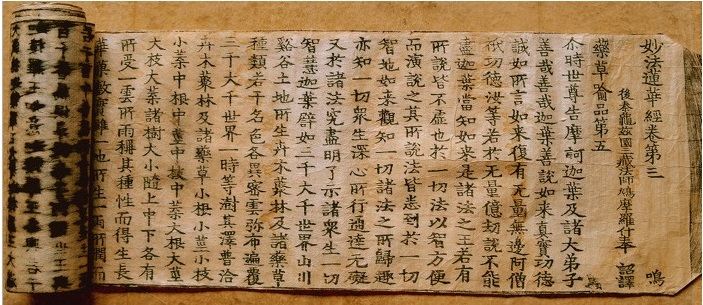 妙法蓮華經卷第三 鳴
後秦龜茲國三藏法師鳩摩羅什奉 詔譯
藥草喻品第五
尒時世尊告摩訶迦葉及諸大弟子
善哉善哉迦葉善說如來真實功德
誠如所言如來復有無量無邊阿僧
祇功德汝等若於无量億劫說不能
盡迦葉當知如來是諸法之王若有
所說皆不虛也於一切法以智方便
而演說之其所說法皆悉到於一切
智地如來觀知一切諸法之所歸趣
亦知一切衆生深心所行通達无礙
又於諸法究盡明了示諸衆生一切
智慧迦葉譬如三千大千世界山川
谿谷土地所生卉木叢林及諸藥草
種類若干名色各異密雲弥布遍覆
三千大千世界一時等澍其澤普洽
卉木叢林及諸藥草小根小莖小枝
小葉中根中莖中枝中葉大根大莖
大枝大葉諸樹大小隨上中下各有
所受一雲所雨稱其種性而得生長
華菓敷實雖一地所生一雨所潤而